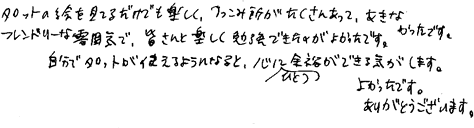 タロットの絵を見てるだけでも楽しく、つっこみ所がたくさんあって、あきな
かったです。
フレンドリーな雰囲気で、皆さんと楽しく勉強できたのがよかったです。
自分でタロットが使えるようになると、心に余裕ができる気がします。
ひとつ
よかったです。
ありがとうございます。